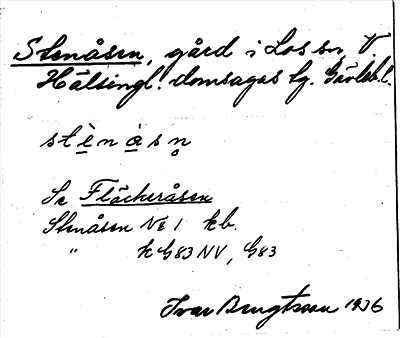 Stenåsen, gård i Los sn, V.
Hälsingl. domsagas tg. Gävleb. l.
stènåsn̥
Se Fläckeråsen
Stenåsen № 1 kb.
" k G83 NV, G83
Ivar Bengtsson 1936